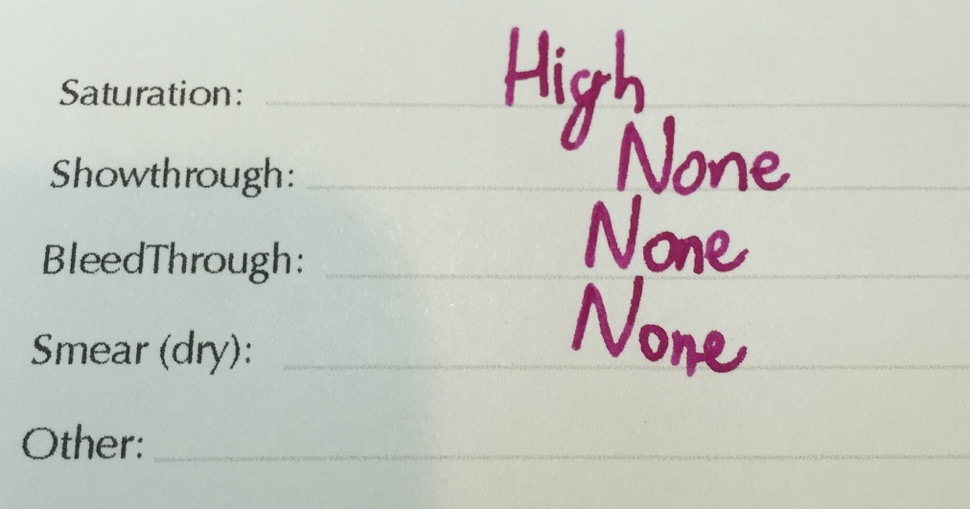 Saturation: High
Showthrough: None
BleedThrough: None
Smear (dry): None
Other: